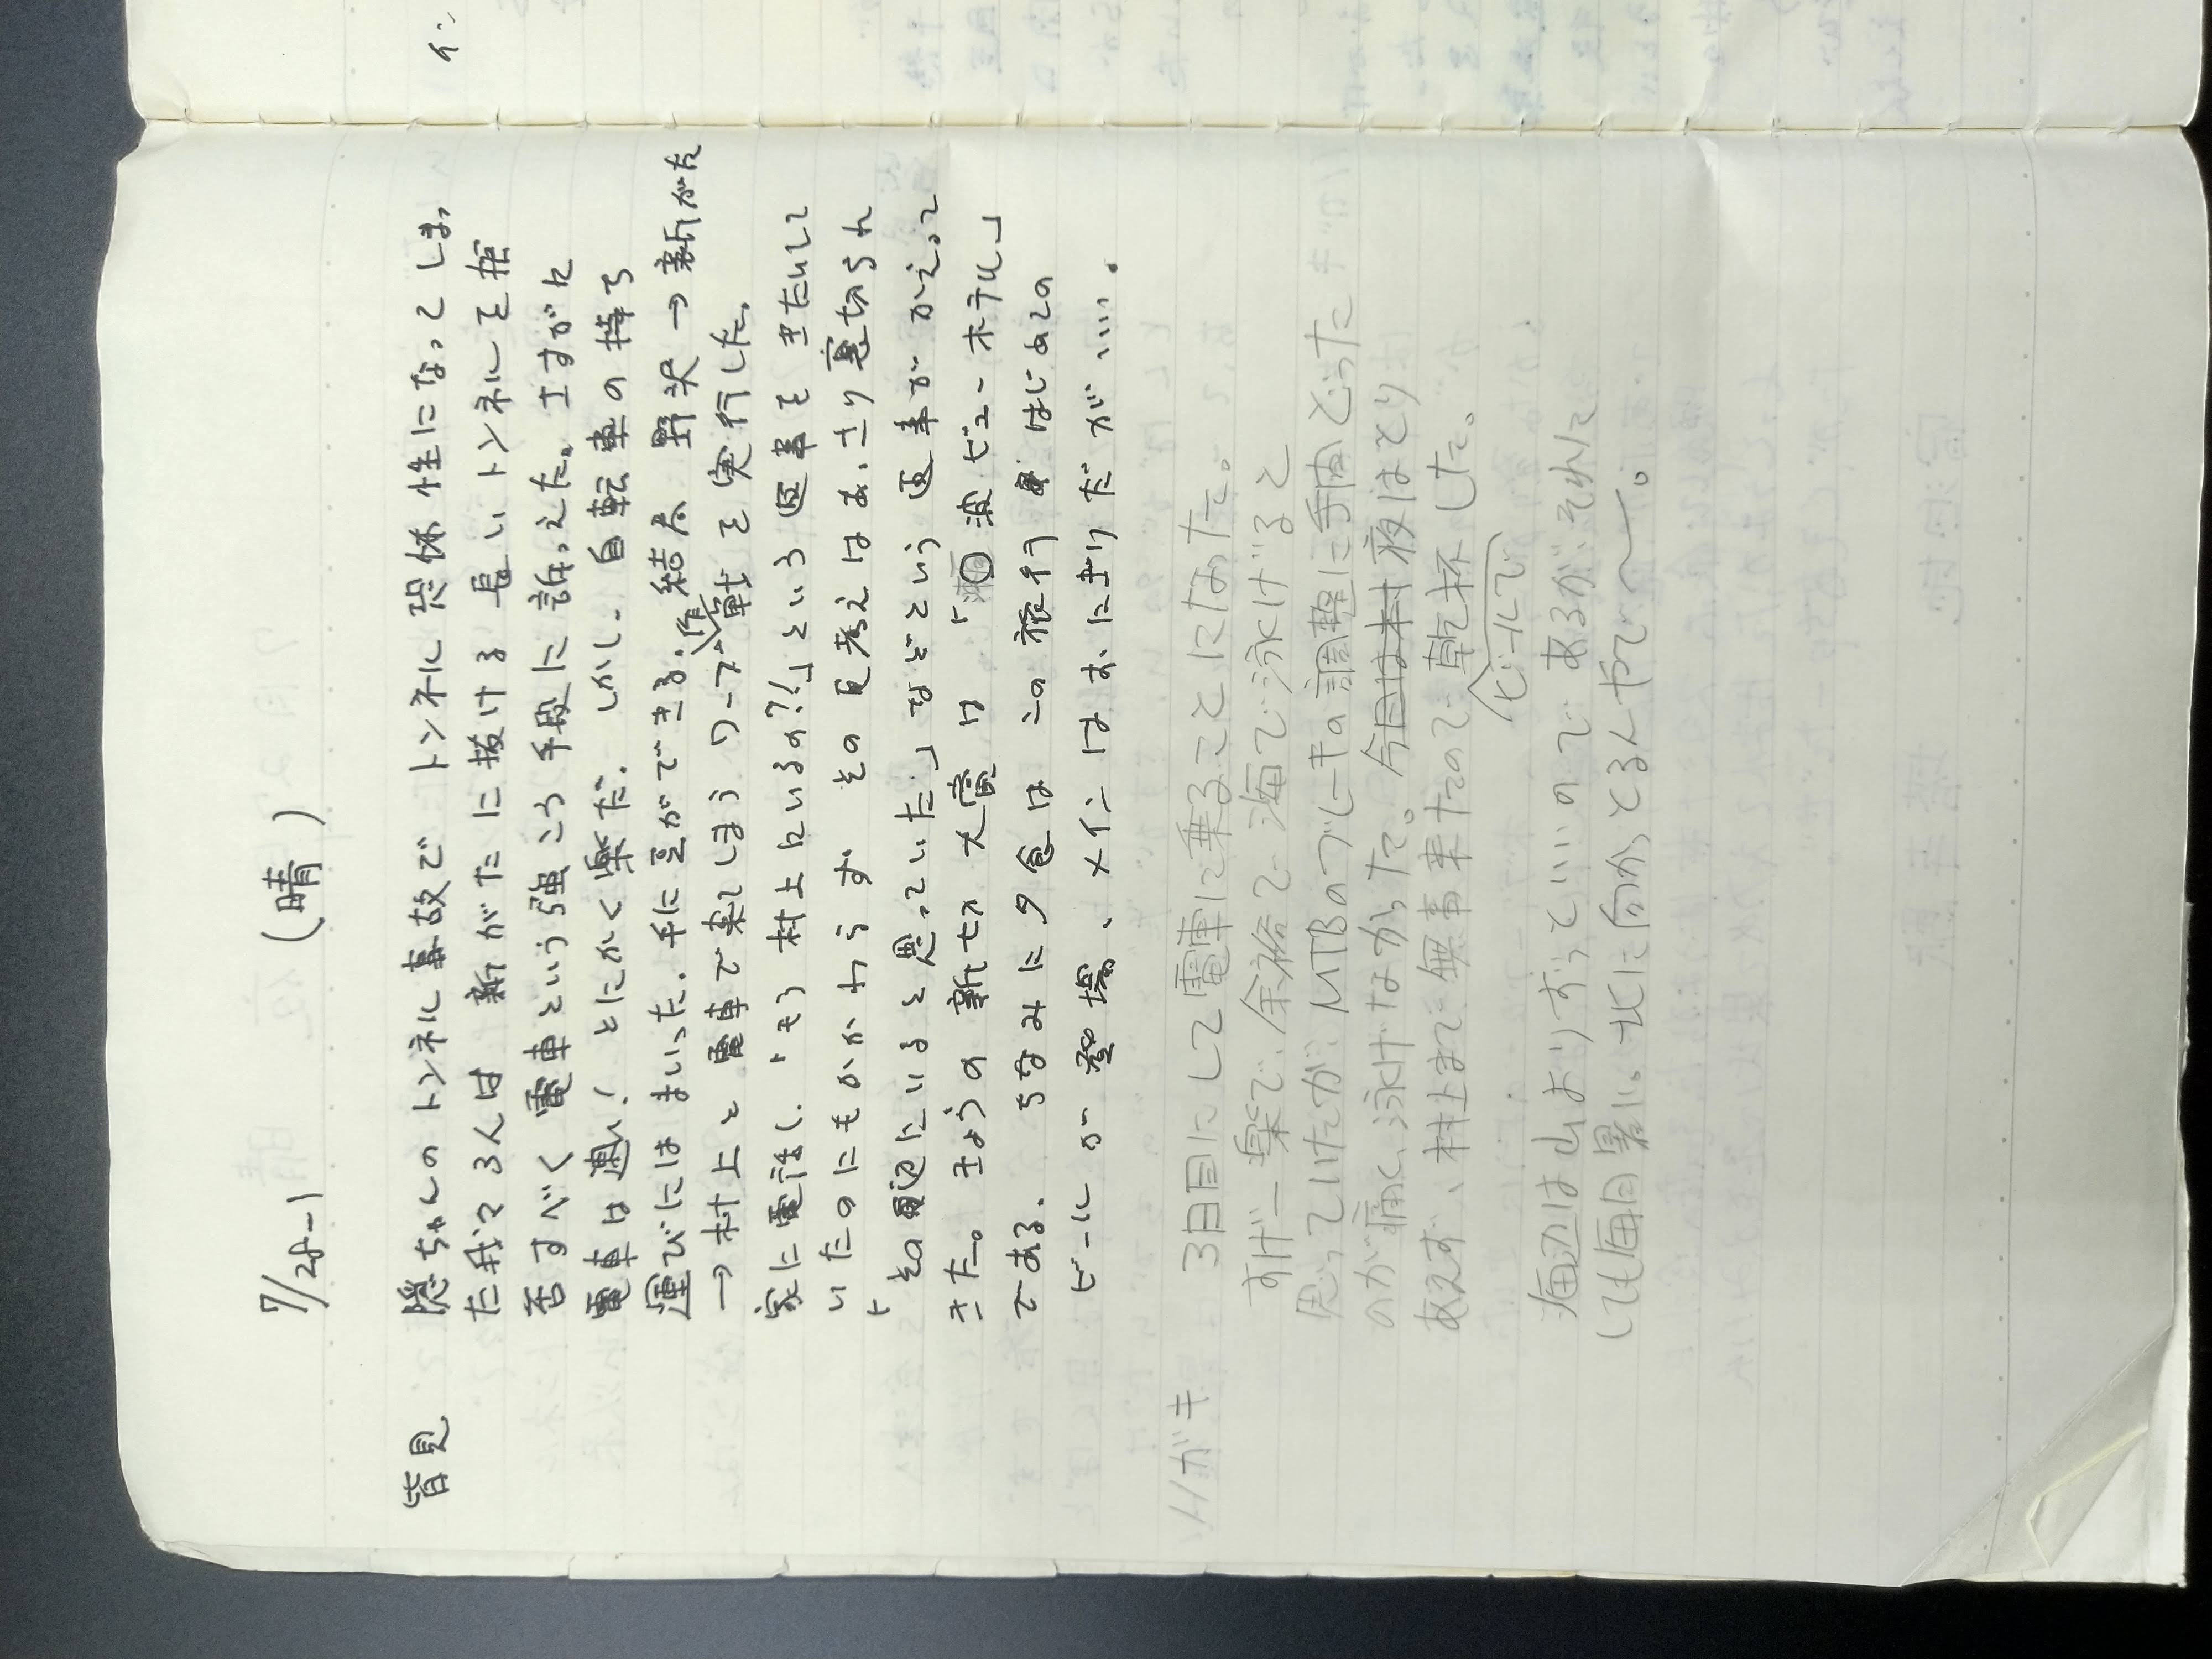 7/28-1 (晴)
皆見 隠ちゃんのトンネル事故で トンネル恐怖性になってしまっ
た我々3人は 新がたに抜ける長いトンネルを拒
否すべく 電車という強こう手段に訴えた。さすがに
電車は速い! とにかく楽だ. しかし. 自転車の持ち
運びには まいった. 手に豆ができる. 結局 野沢→新がた
→村上と 電車で来てしまう ワープ作戦を実行した.
家に電話し.「もう村上にいるの?!」という返事をきたいして
いたのにもかかわらず その考えは あっさり裏切られ
「その辺にいると思っていた」などという返事が かえって
きた。きょうの新セカ大賞は 「瀬波ビューホテル」
である. ちなみに夕食は この旅行 はじめての
ビールが登場、メインは おにぎりだが…..
ハガキ 3日目にして電車に乗ることになった。
すげー楽で、余裕で 海で泳げると
思っていたが MTBのブレーキの調整に手間どった
のが痛く、泳げなかった。今日は村 夜はとり
あえず、村上まで 無事来たので 乾杯した。
ビールで
海辺は山よりすずしいので あるが それに
しても毎日暑い。北に向かっとるんやで〜。